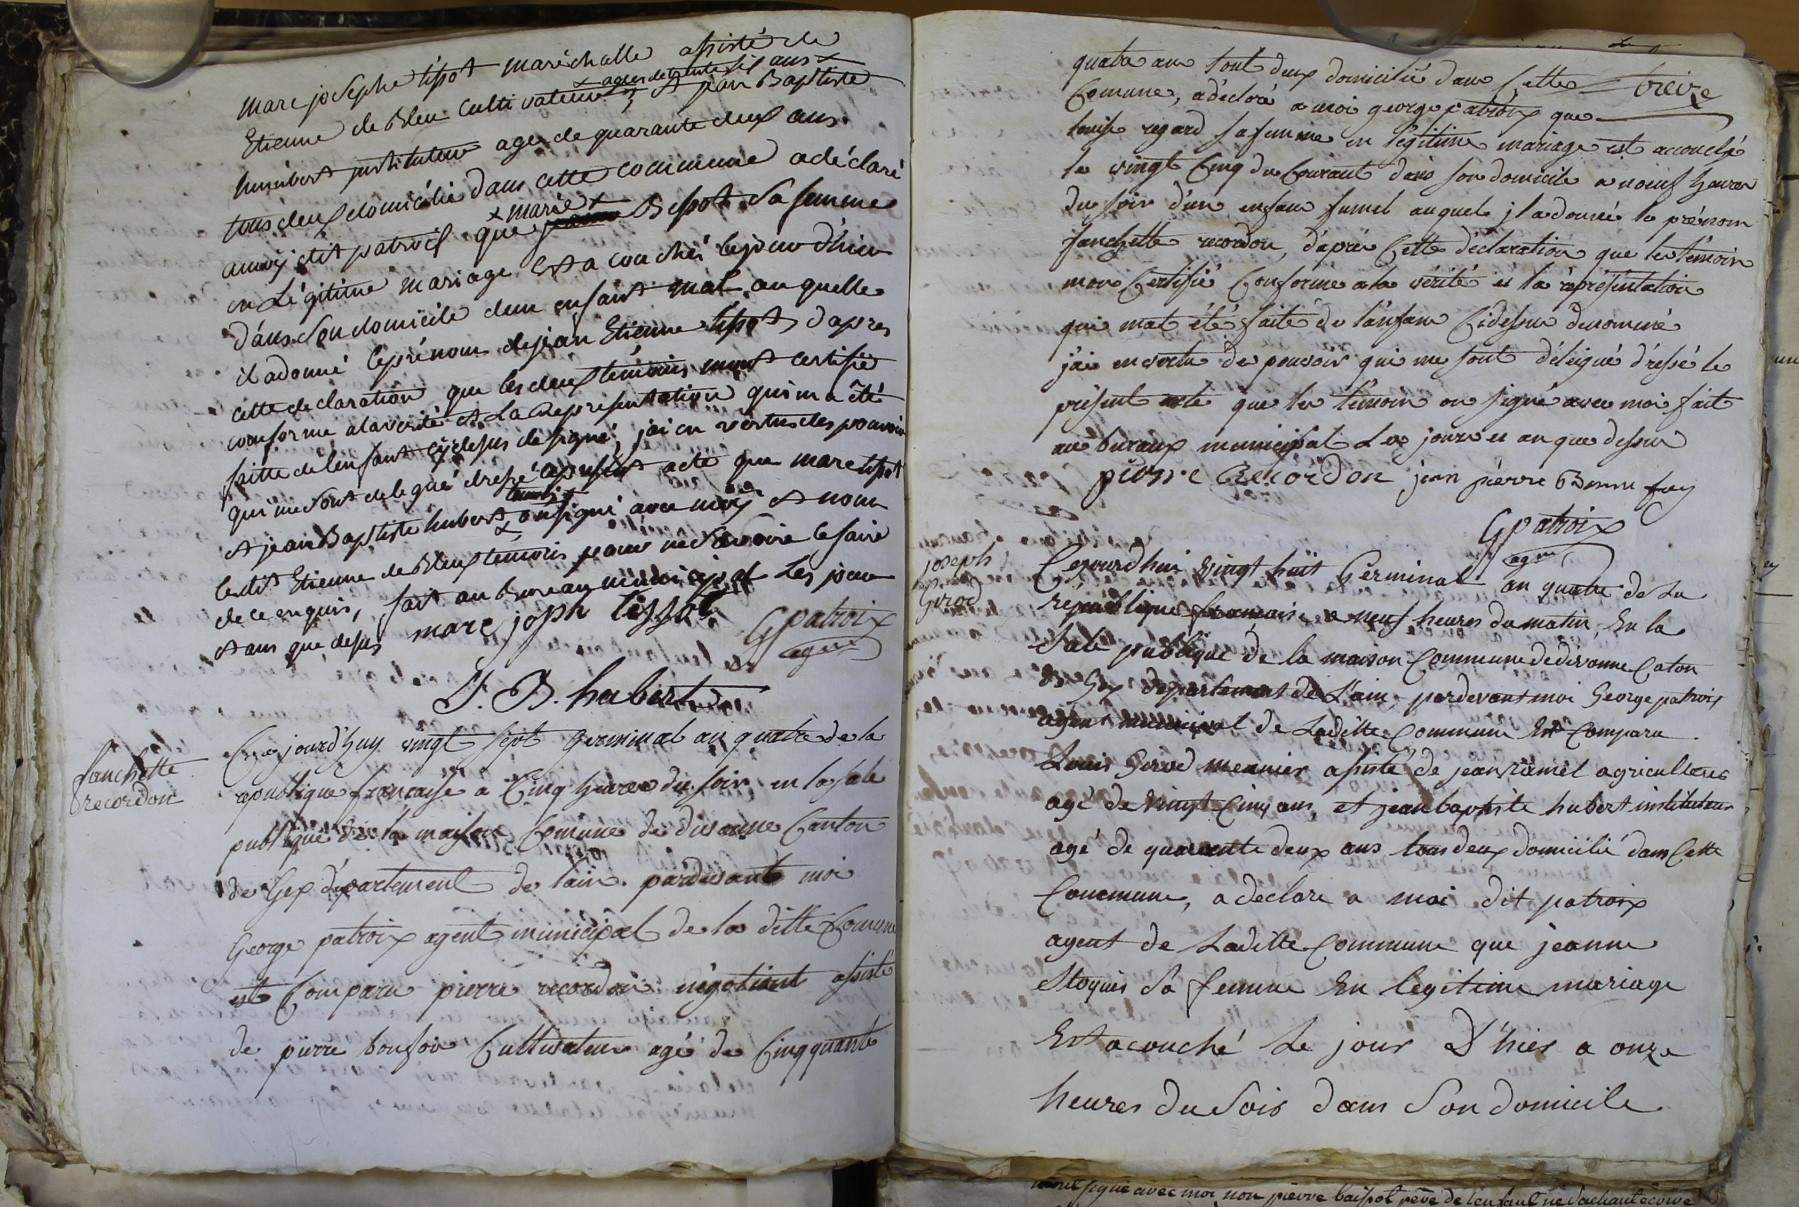 marc josephe tissot maréchalle assisté de
Etienne de Bleu cultivateur x agée de trente six ans x et jean Baptiste
humbert jnstituteur age de quarante deux ans
tous deux domicilié dans cette commune a déclaré
a moy dit patroix que x marie x Bissot sa femme
en Légitime mariage est a couchés le jour d'hier
dans son domicile d'un enfant mal au quelle
il a donné le prénom de jean Etienne tissot, d'apres
cette declaration que les deux témoins mont certifié
conforme a la verité et La Representation qui m a été
faitte de l'enfant cy desus designé, j'ai en vertus des pouvoir
qui me sont delegué dressé le présent acte que marc tissot
et jean Baptiste hubert on signé avec moy et nom
le dit Etienne de Bleux temoins pour ne savoire le faire
de ce enquis, fait au Bureau municipal Les jour
et ans que desus
marc joph tissot
G patroix
agent
J. B. hubert
fanchette
recordon
Ce jourd'huy vingt sept germinal an quatre de la
republique française a Cinq heures du soir en la sale
publique de la maison Comune de divonne Canton
de Gex département de l'ain. pardevant moi
George patroix agent municipal de la ditte Comune
est Comparu pierre recordon négotiant assisté
de pierre bonfoir Cultivateur agé de Cinqquante
quatre ans tout deux domicilié dans Cette
Comune, a déclaré a moi george patroix que
louise regard sa femme en légitime mariage est accouché
le vingt Cinq du Courant dans son domicile a neuf heures
du soir d'un enfant fumel auquel jl a donné le prénom
fanchette recordon, d'après Cette déclaration que les témoin
mon Certifié Conforme a la vérité et la représentation
qui mat été faite de l'anfant Cidessus denommé
j'ai en vertu de pouvoir qui me sont délégué dréssé le
présent acte que les témoin on signé avec moi fait
au buraux municipal Les jours et an que dessus
pierre Recordon jean pierre Bonne foy
G patroix
agent
joseph
Girod
Cejourd'hui vingt huit Germinal an quatre de La
république francaise a neuf heures du matin, En la
Sale publique de la maison Commune de divonne Caton
de Gex département de L'ain. pardevant moi George patroix
agent municipal de Laditte Commune Est Comparu
Louis Girod meunier assisté de jean ramel agriculteur
agé de vingt Cinq ans, et jean baptiste hubert instituteur
agé de quarante deux ans tous deux domicilié dans Cette
Commune, a déclaré a moi dit patroix
agent de Laditte Commune que jeanne
Sa femme En legitime mariage
Est acouché Le jour D'hier a onze
heures du Soir dans Son domicile
mont signé avec moi non pierre baissot père de l'enfant ne sachant écrire